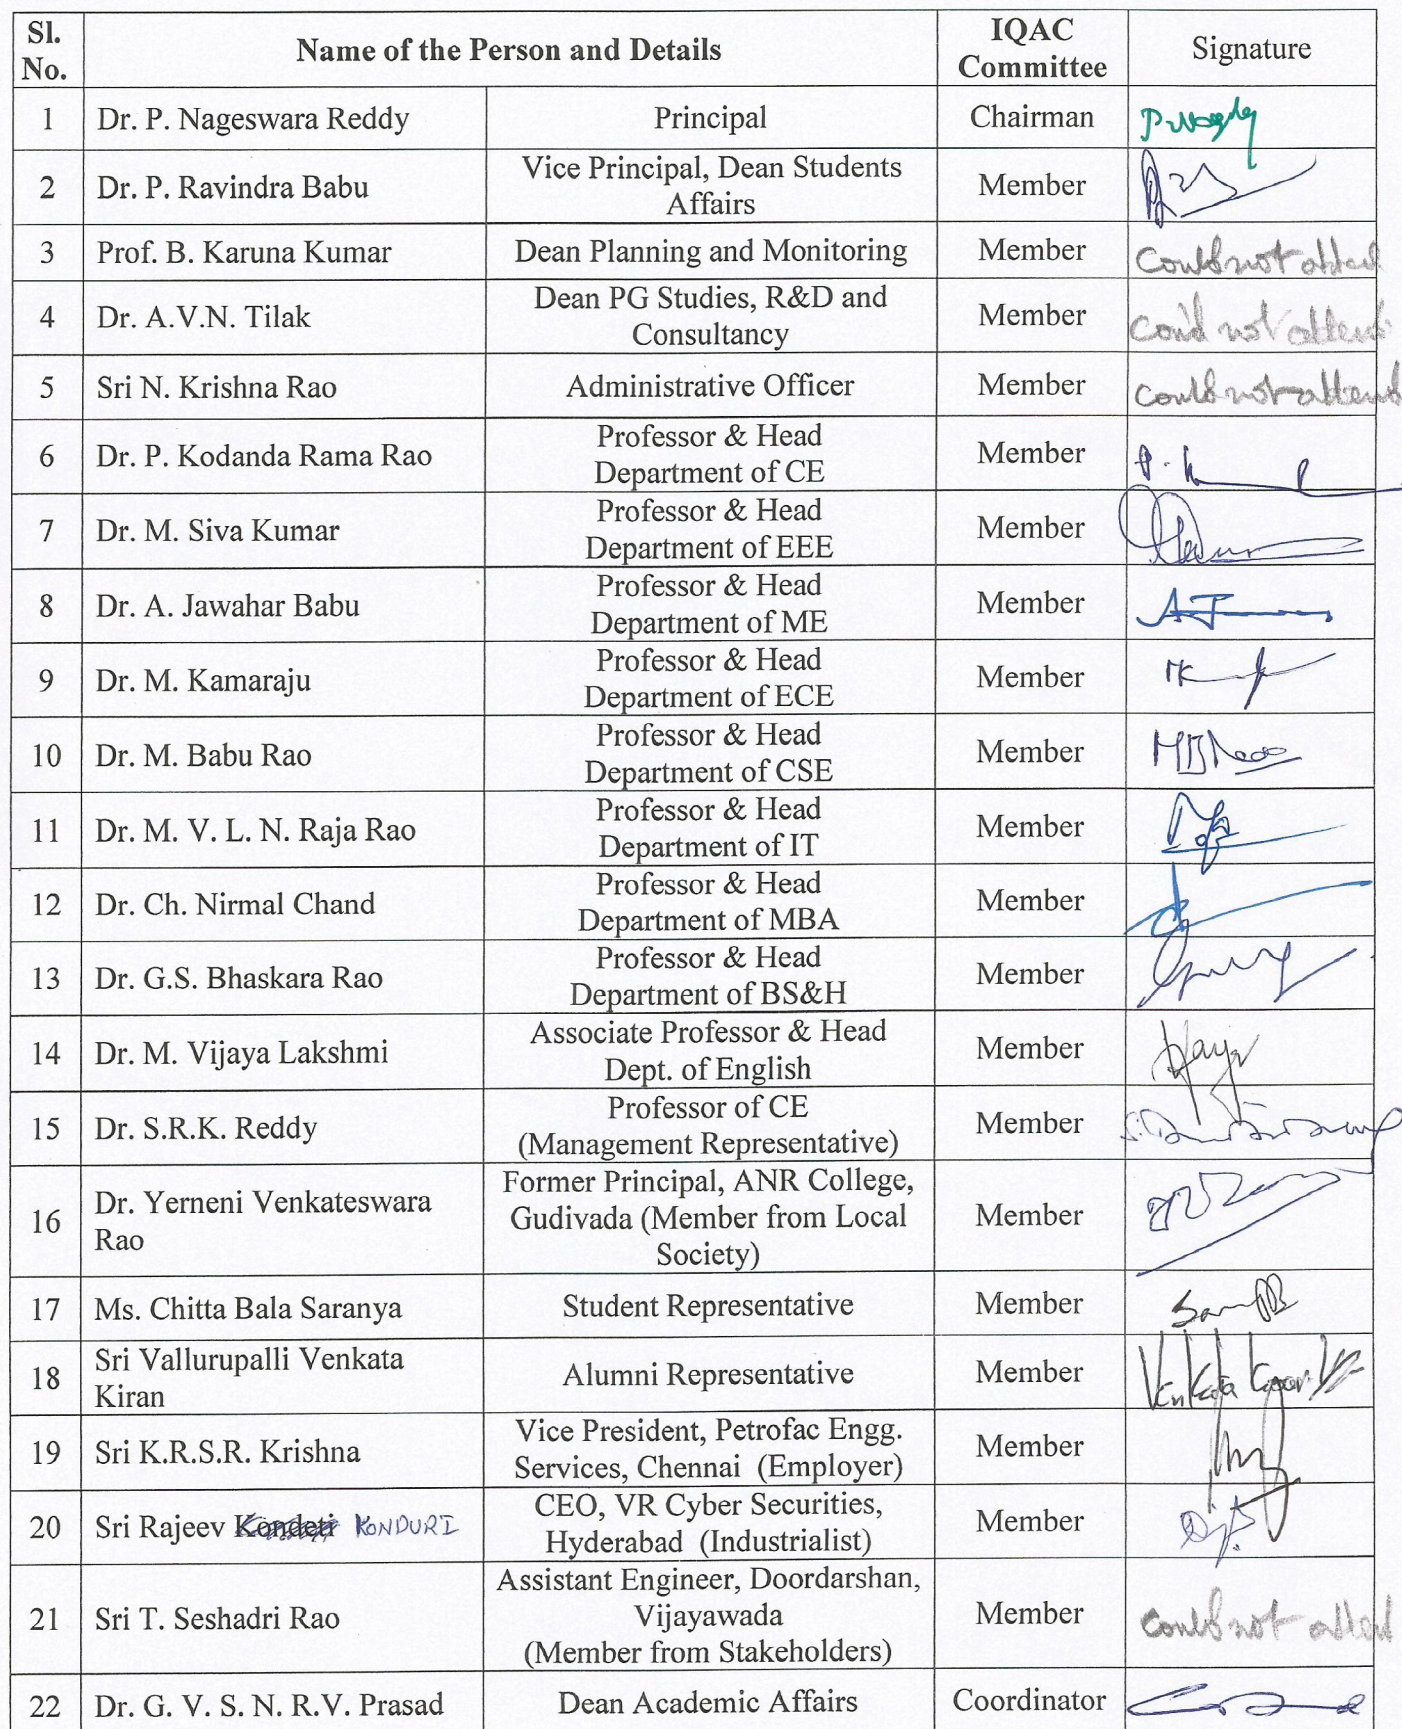 Sl. No. Name of the Person and Details IQAC Committee Signature
1 Dr. P. Nageswara Reddy Principal Chairman
2 Dr. P. Ravindra Babu Vice Principal, Dean Students Affairs Member
3 Prof. B. Karuna Kumar Dean Planning and Monitoring Member Could not attend
4 Dr. A.V.N. Tilak Dean PG Studies, R&D and Consultancy Member Could not attend
5 Sri N. Krishna Rao Administrative Officer Member Could not attend
6 Dr. P. Kodanda Rama Rao Professor & Head Department of CE Member
7 Dr. M. Siva Kumar Professor & Head Department of EEE Member
8 Dr. A. Jawahar Babu Professor & Head Department of ME Member
9 Dr. M. Kamaraju Professor & Head Department of ECE Member
10 Dr. M. Babu Rao Professor & Head Department of CSE Member
11 Dr. M. V. L. N. Raja Rao Professor & Head Department of IT Member
12 Dr. Ch. Nirmal Chand Professor & Head Department of MBA Member
13 Dr. G.S. Bhaskara Rao Professor & Head Department of BS&H Member
14 Dr. M. Vijaya Lakshmi Associate Professor & Head Dept. of English Member
15 Dr. S.R.K. Reddy Professor of CE (Management Representative) Member
16 Dr. Yerneni Venkateswara Rao Former Principal, ANR College, Gudivada (Member from Local Society) Member
17 Ms. Chitta Bala Saranya Student Representative Member
18 Sri Vallurupalli Venkata Kiran Alumni Representative Member
19 Sri K.R.S.R. Krishna Vice President, Petrofac Engg. Services, Chennai (Employer) Member
20 Sri Rajeev Kondeti KONDURI CEO, VR Cyber Securities, Hyderabad (Industrialist) Member
21 Sri T. Seshadri Rao Assistant Engineer, Doordarshan, Vijayawada (Member from Stakeholders) Member Could not attend
22 Dr. G. V. S. N. R.V. Prasad Dean Academic Affairs Coordinator